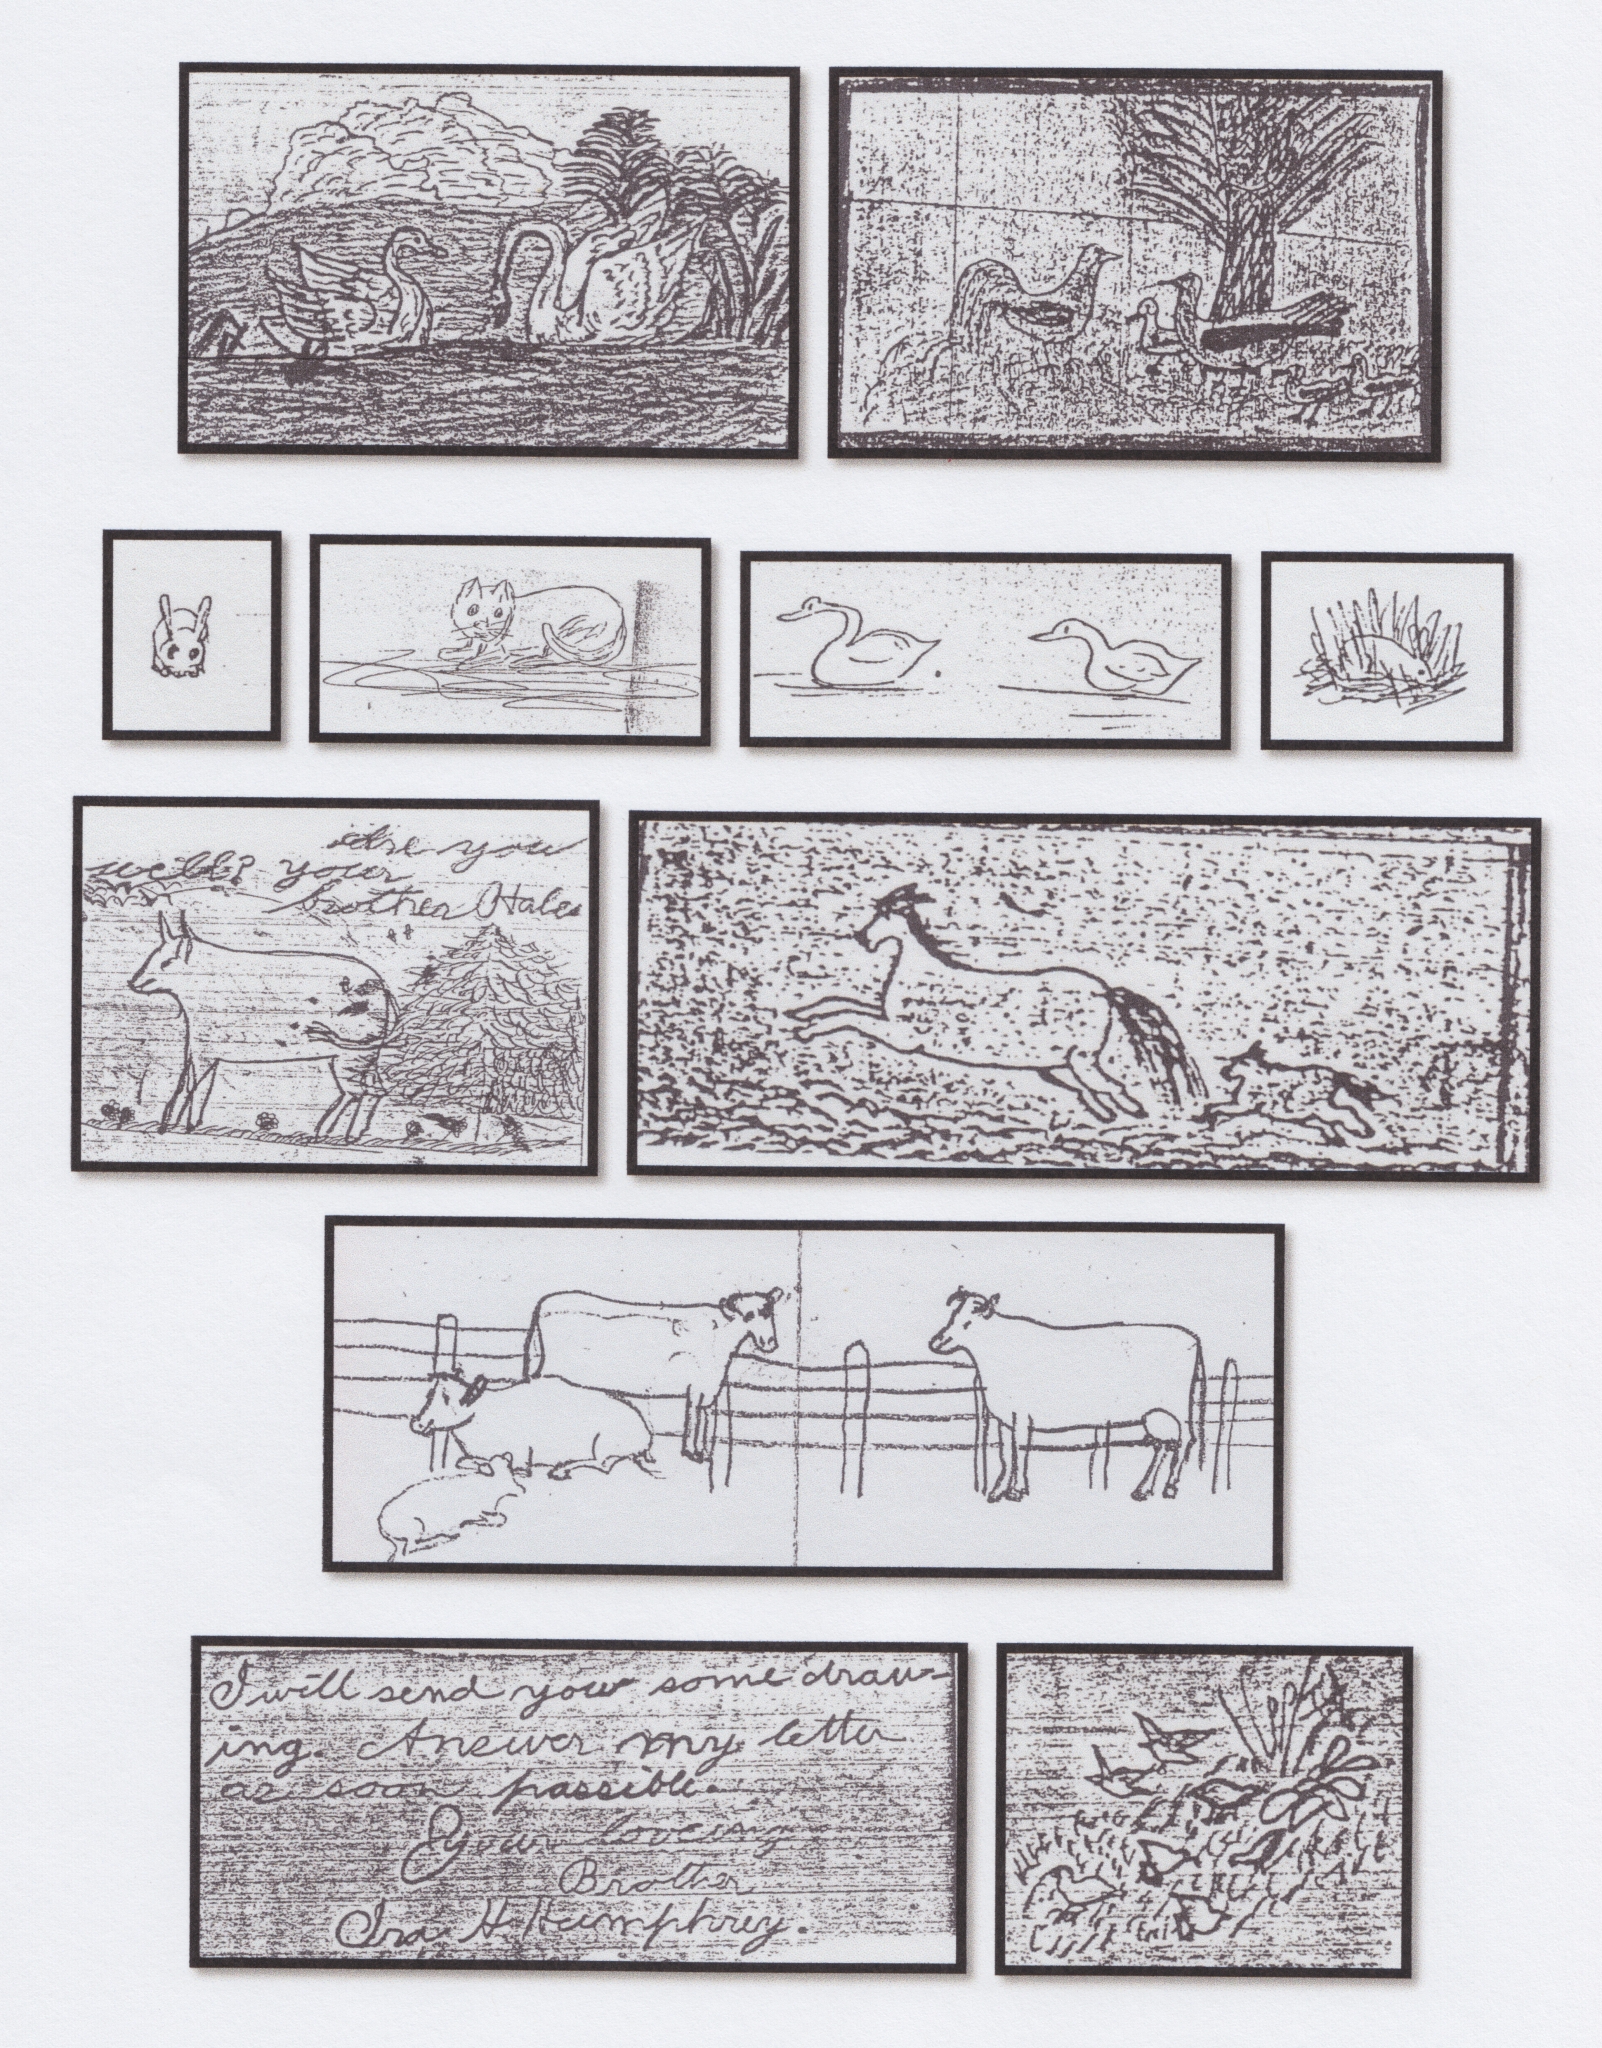 Are you
well? your
brother Hale
I will send you some draw-
ing. Answer my letter
as soon possible.
Your loving
Brother
Ira H Humphrey.